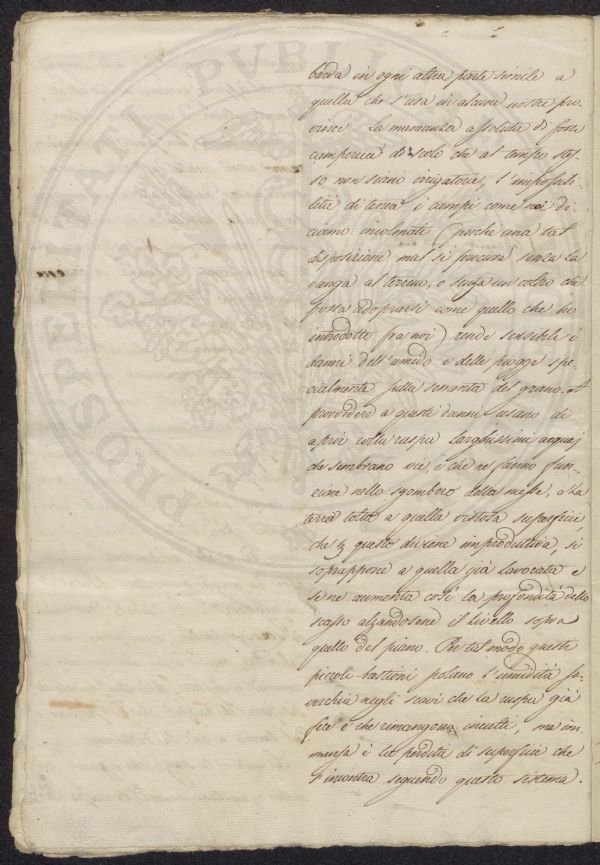 barda in ogni altra parte simile a
quella che s'usa in alcune nostre pro-
vincie. La mancanza assoluta di fosse
camperecce di scolo che al tempo stes-
so non siano irrigatorie, l'impossibi-
lità di tener i campi come noi di-
ciamo incolmati (perchè una tal
disposizione mal si procura senza la
vanga al terreno, o senza un coltro che
possa adoprarsi come quello che ho
introdotto fra noi) rende sensibili i
danni dell'umido e delle piogge spe-
cialmente sulla sementa del grano. A
provvedere a questi danni usano di
aprire colla ruspa larghissimi acquaj
che sembrano vie, e che ne fanno fun-
zione nello sgombero della messe, e la
terra tolta a quella vistosa superficie,
che p questo diviene improduttiva, si
soprappone a quella già lavorata e
se ne aumenta così la profondità dello
scasso alzandosene il livello sopra
quello del piano. Per tal modo questi
piccoli bastioni scolano l'umidità so-
verchia negli scavi che la ruspa già
fece e che rimangono incolti, ma im-
mensa è la perdita di superficie che
s'incontra seguendo questo sistema.
PROSPERITATI PVBLI